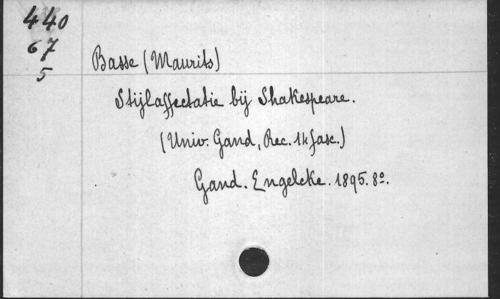 440
67
5
Basse (Maurits)
Stijlaffectatie bij Shakespeare.
(Univ. Gand, Rec. 14 fasc.)
Gand. Engelcke. 1895. 8º.